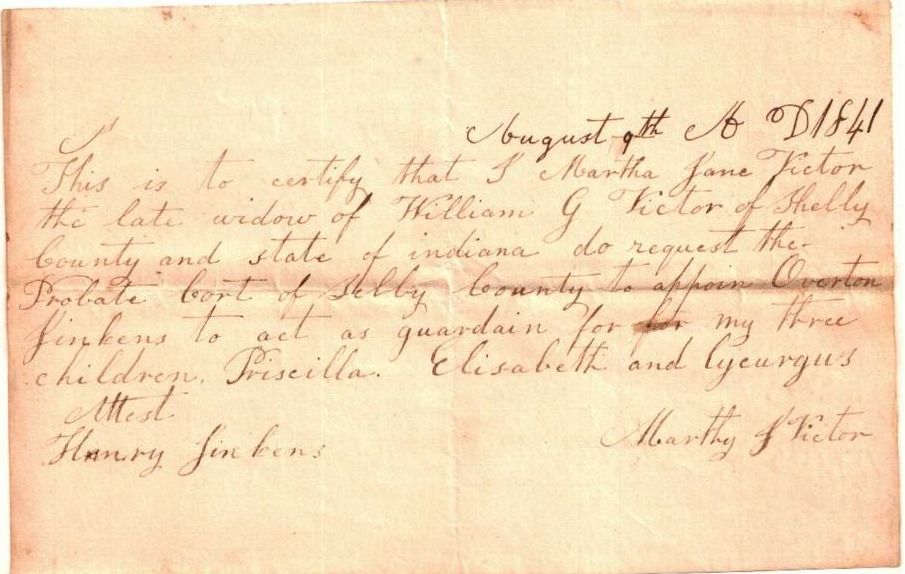 August 9th A D 1841
This is to certify that I Martha Jane Victor
the late widow of William G Victor of Shelly
County and state of indiana do request the
Probate Cort of Selby County to appoin Overton
Jinkens to act as guardain for for my three
children. Priscilla. Elisabeth and Lycurgus
Attest
Henry Jinkens
Marthy J Victor